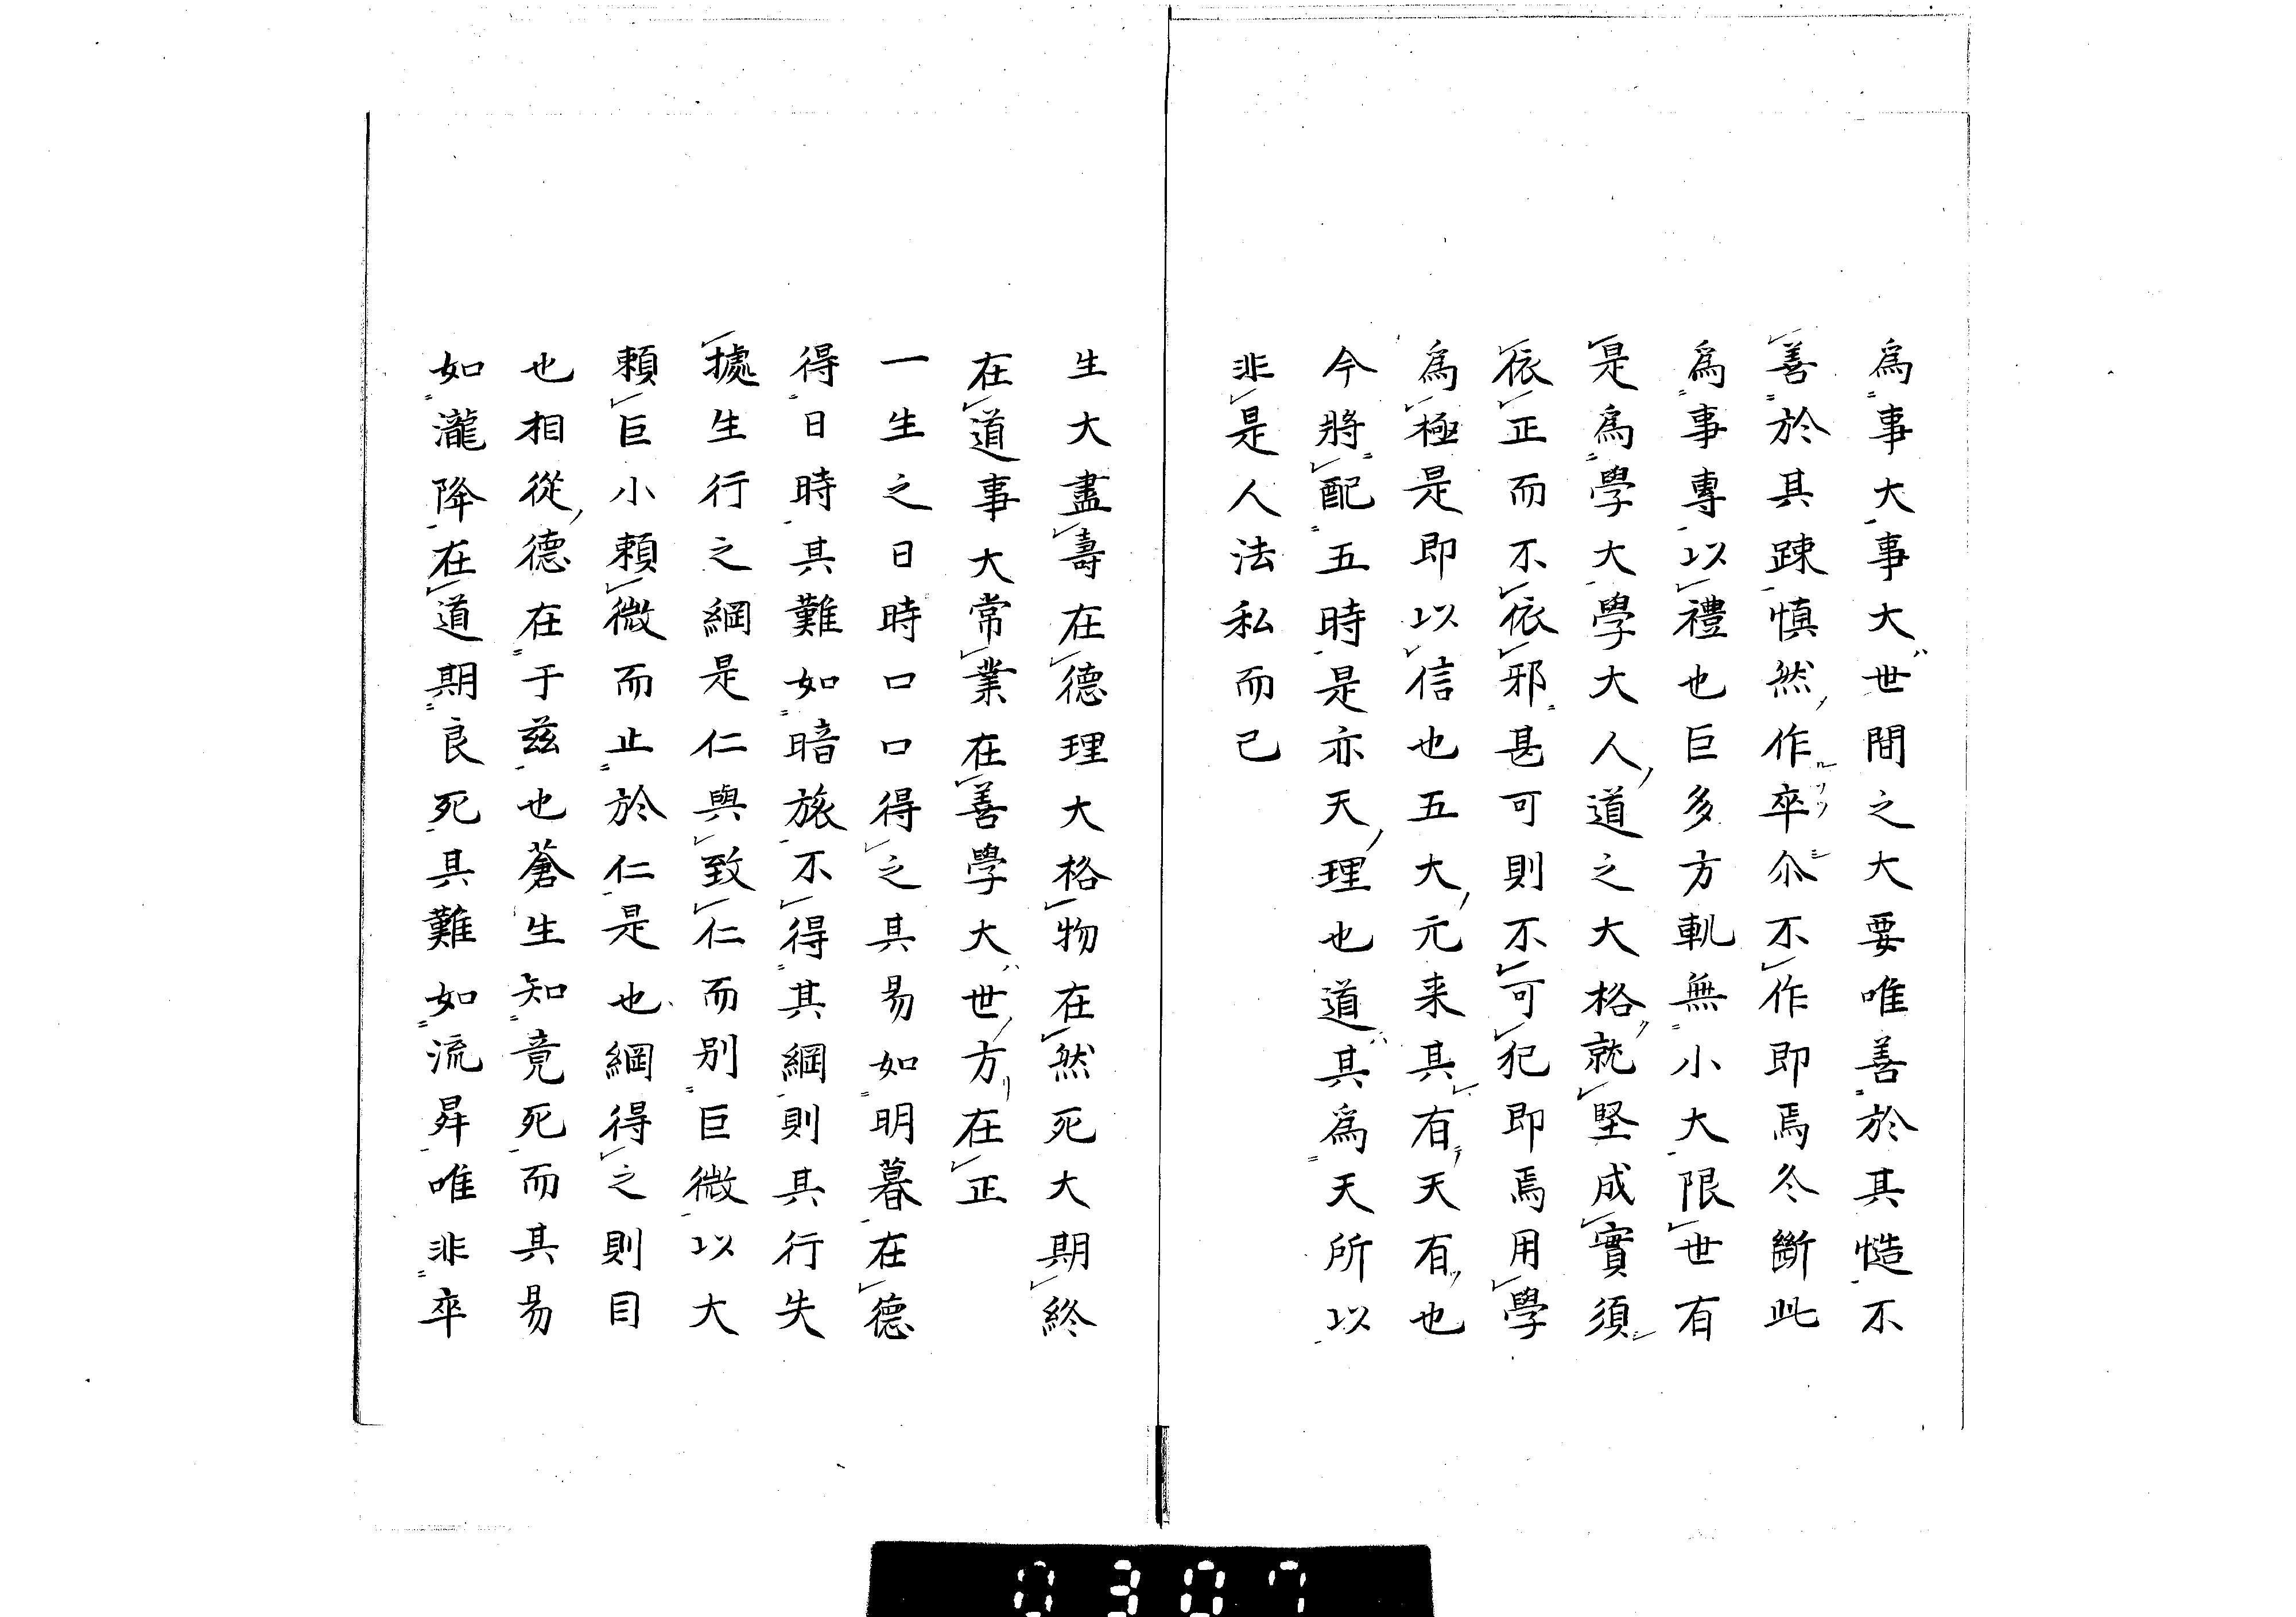 為事大事大世間之大要唯善於其慥不
善於其踈慎然作卒尒不作即焉冬斷此
為事專以禮也巨多方軌無小大限世有
是為學大學大人道之大格就堅成實須
依正而不依邪甚可則不可犯即焉用學
為極是即以信也五大元来其有天有也
今將配五時是亦天理也道其為天所以
非是人法私而己
生大盡壽在德理大格物在然死大期終
在道事大常業在善學大世方在正
一生之日時口口得之其易如明暮在德
得日時其難如暗旅不得其綱則其行失
據生行之綱是仁與致仁而別巨微以大
頼巨小頼微而止於仁是也綱得之則目
也相從德在于茲也蒼生知竟死而其易
如瀧降在道期良死其難如流昇唯非卒
0307